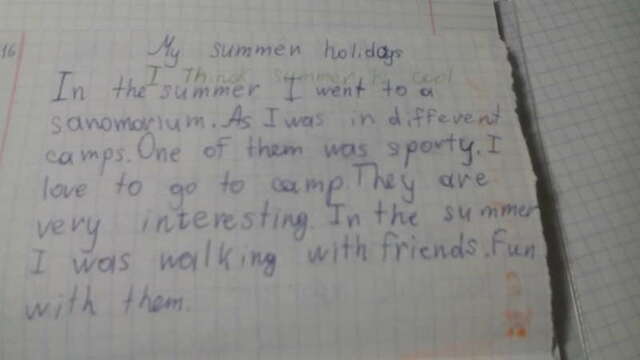 16
My summer holidays
I Think summer is cool
In the summer I went to a
sanomorium. As I was in different
camps. One of them was sporty. I
love to go to camp. They are
very interesting. In the summer
I was walking with friends. Fun
with them.